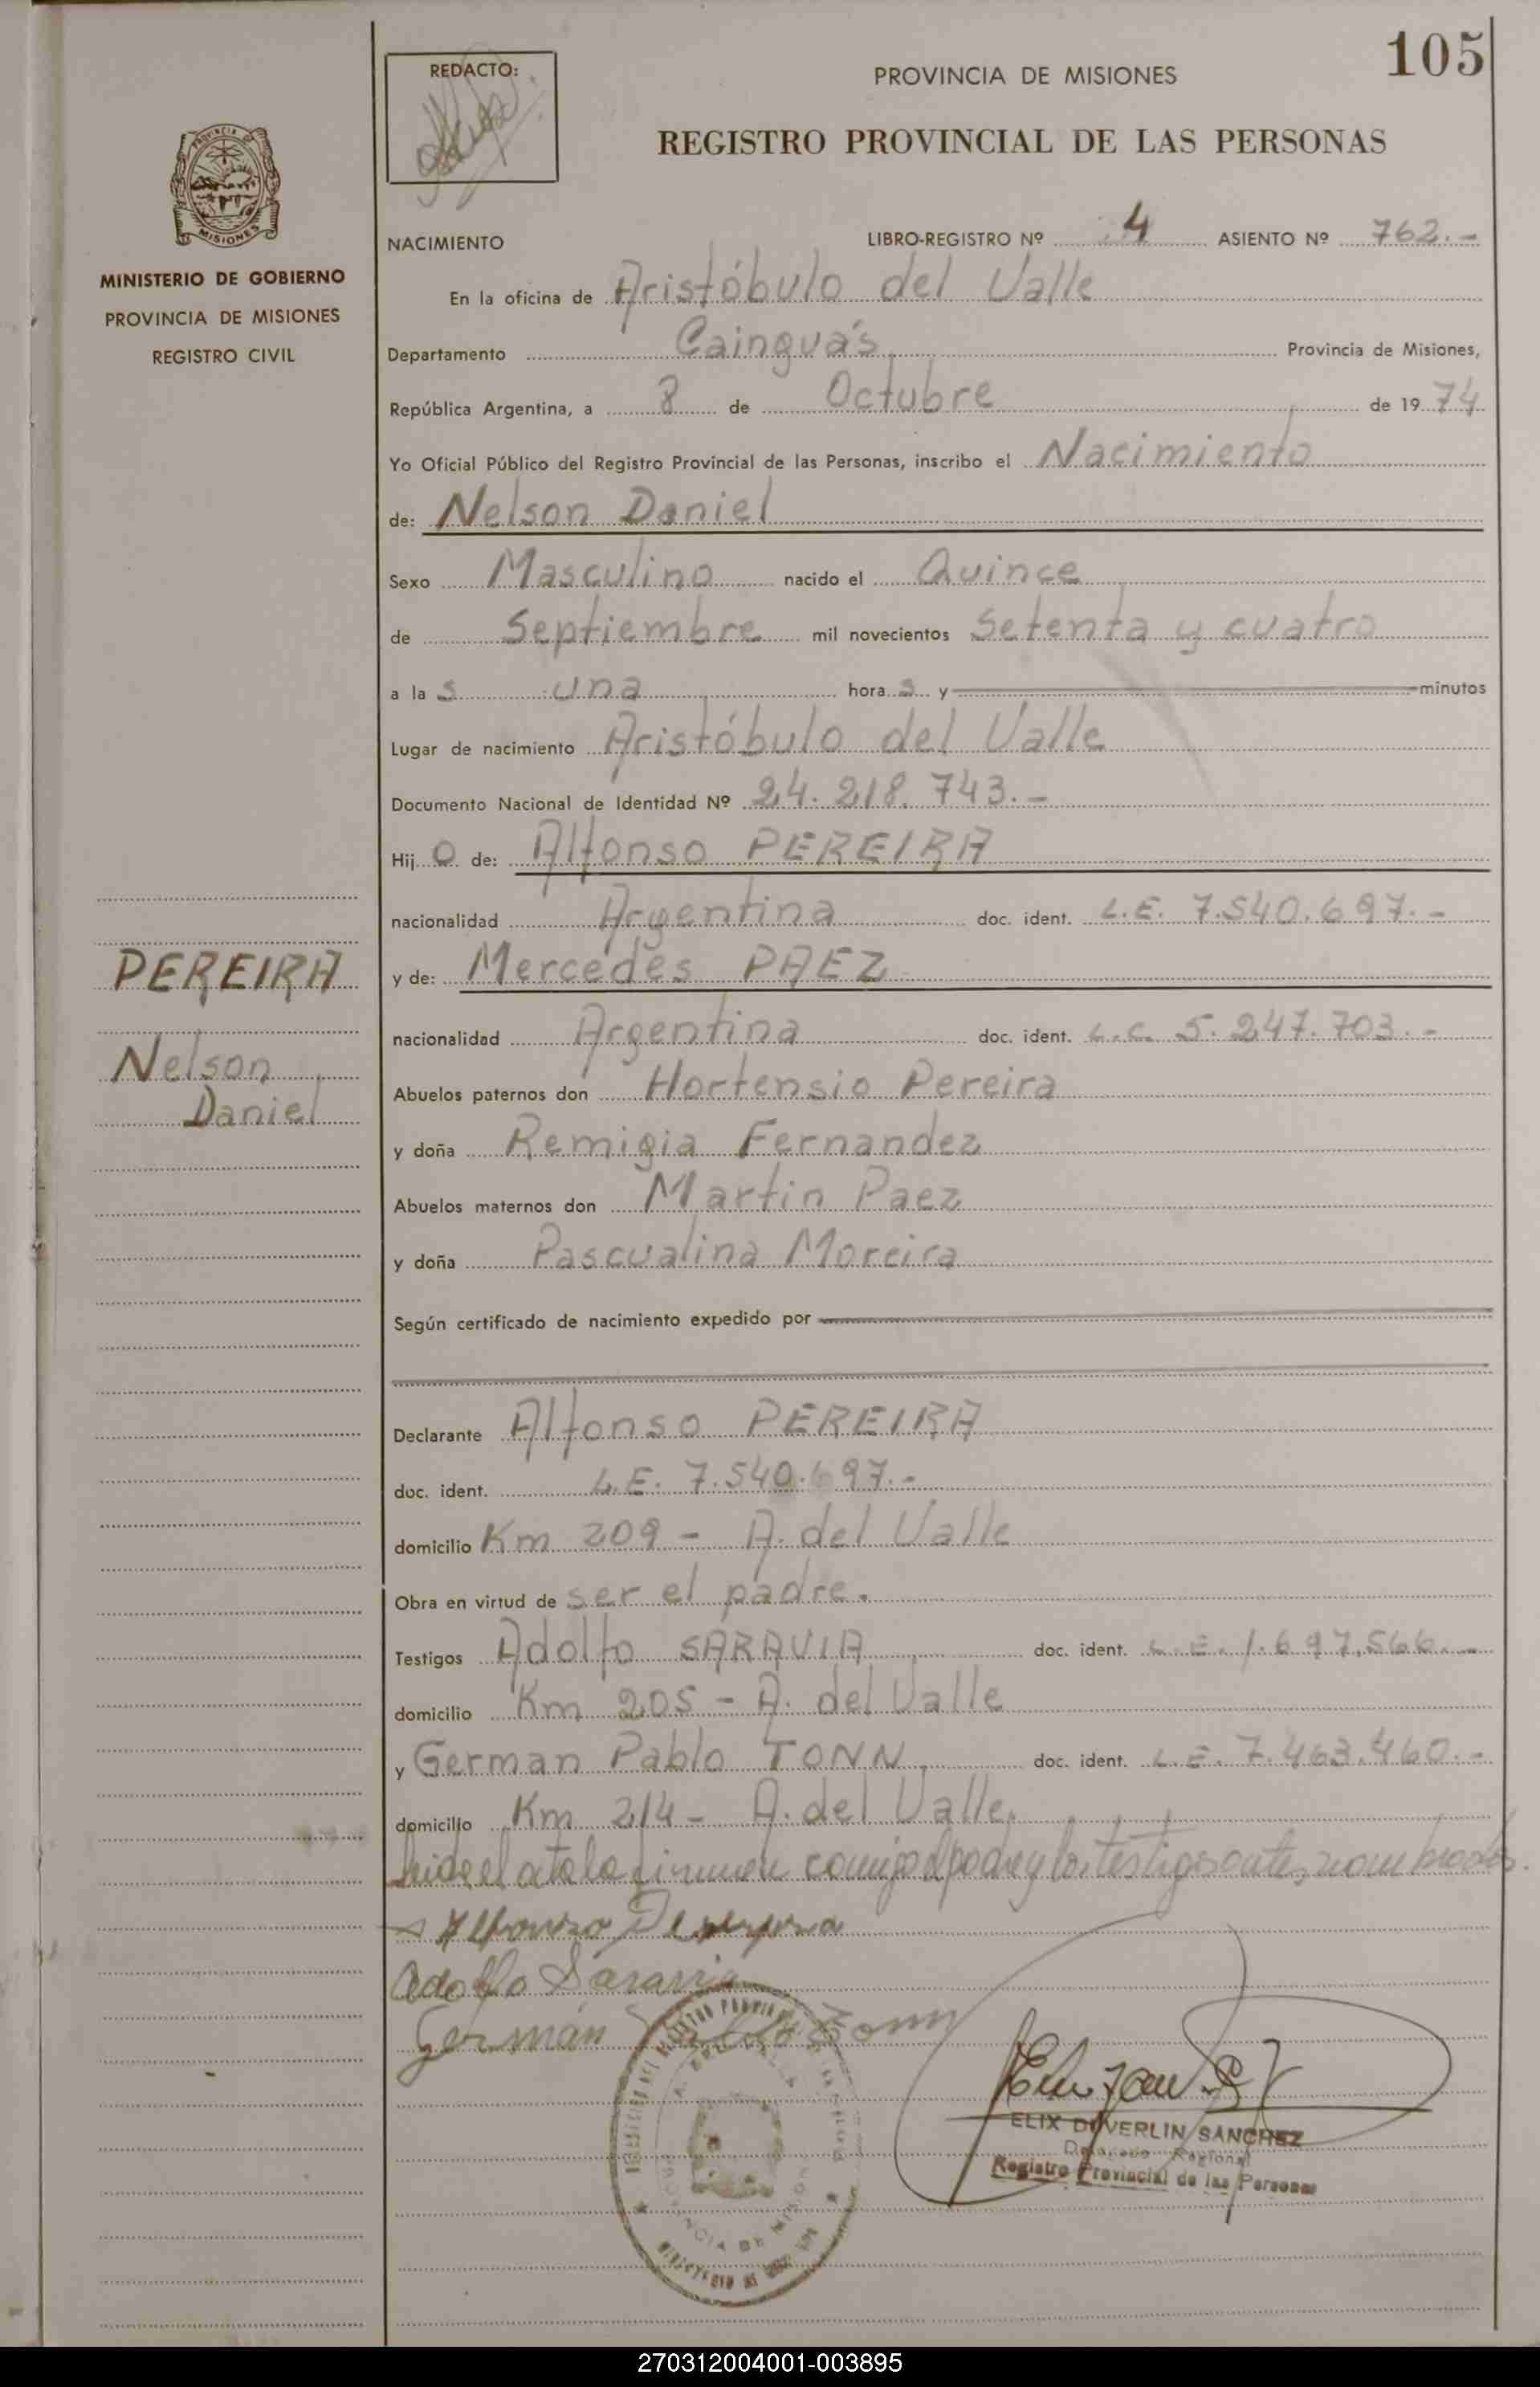 105
REDACTO:
PROVINCIA DE MISIONES
REGISTRO PROVINCIAL DE LAS PERSONAS
PROVINCIA DE
MISIONES
MINISTERIO DE GOBIERNO
PROVINCIA DE MISIONES
REGISTRO CIVIL
NACIMIENTO LIBRO-REGISTRO Nº 4 ASIENTO Nº 762.-
En la oficina de Aristóbulo del Valle
Departamento Cainguás Provincia de Misiones,
República Argentina, a 8 de Octubre de 1974
Yo Oficial Público del Registro Provincial de las Personas, inscribo el Nacimiento
de: Nelson Daniel
Sexo Masculino nacido el Quince
de Septiembre mil novecientos setenta y cuatro
a las una horas y minutos
Lugar de nacimiento Aristóbulo del Valle
Documento Nacional de Identidad Nº 24.218.743.-
Hijo de: Alfonso PEREIRA
nacionalidad Argentina doc. ident. L.E. 7.540.697.-
y de: Mercedes PAEZ
nacionalidad Argentina doc. ident. L.C. 5.247.703.-
Abuelos paternos don Hortensio Pereira
y doña Remigia Fernandez
Abuelos maternos don Martin Paez
y doña Pascualina Moreira
Según certificado de nacimiento expedido por
Declarante Alfonso PEREIRA
doc. ident. L.E. 7.540.697.-
domicilio Km 209 - A. del Valle
Obra en virtud de ser el padre.
Testigos Adolfo SARAVIA doc. ident. L.E. 1.697.566.-
domicilio Km 205 - A. del Valle
y German Pablo TONN doc. ident. L.E. 7.463.460.-
domicilio Km 214 - A. del Valle.
PEREIRA
Nelson
Daniel
leida el acta la firman conmigo el padre y los testigos antes nombrados.
Adolfo Saravia
Germán Pablo Tonn
ELIX DUVERLIN SANCHEZ
Delegado Regional
Registro Provincial de las Personas
PROVINCIA DE MISIONES
270312004001-003895